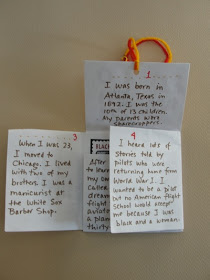 1
I was born in
Atlanta, Texas in
1892. I was the
10th of 13 children.
My parents were
sharecroppers.
3
When I was 23,
I moved to
Chicago. I lived
with two of my
brothers. I was a
manicurist at
the White Sox
Barber Shop.
After
to lear
my ow
calle
dream
flight
aviat
a plan
thirty
4
I heard lots of
stories told by
pilots who were
returning home from
World War I. I
wanted to be a pilot
but no American flight
School would accept
me because I was
black and a woman.